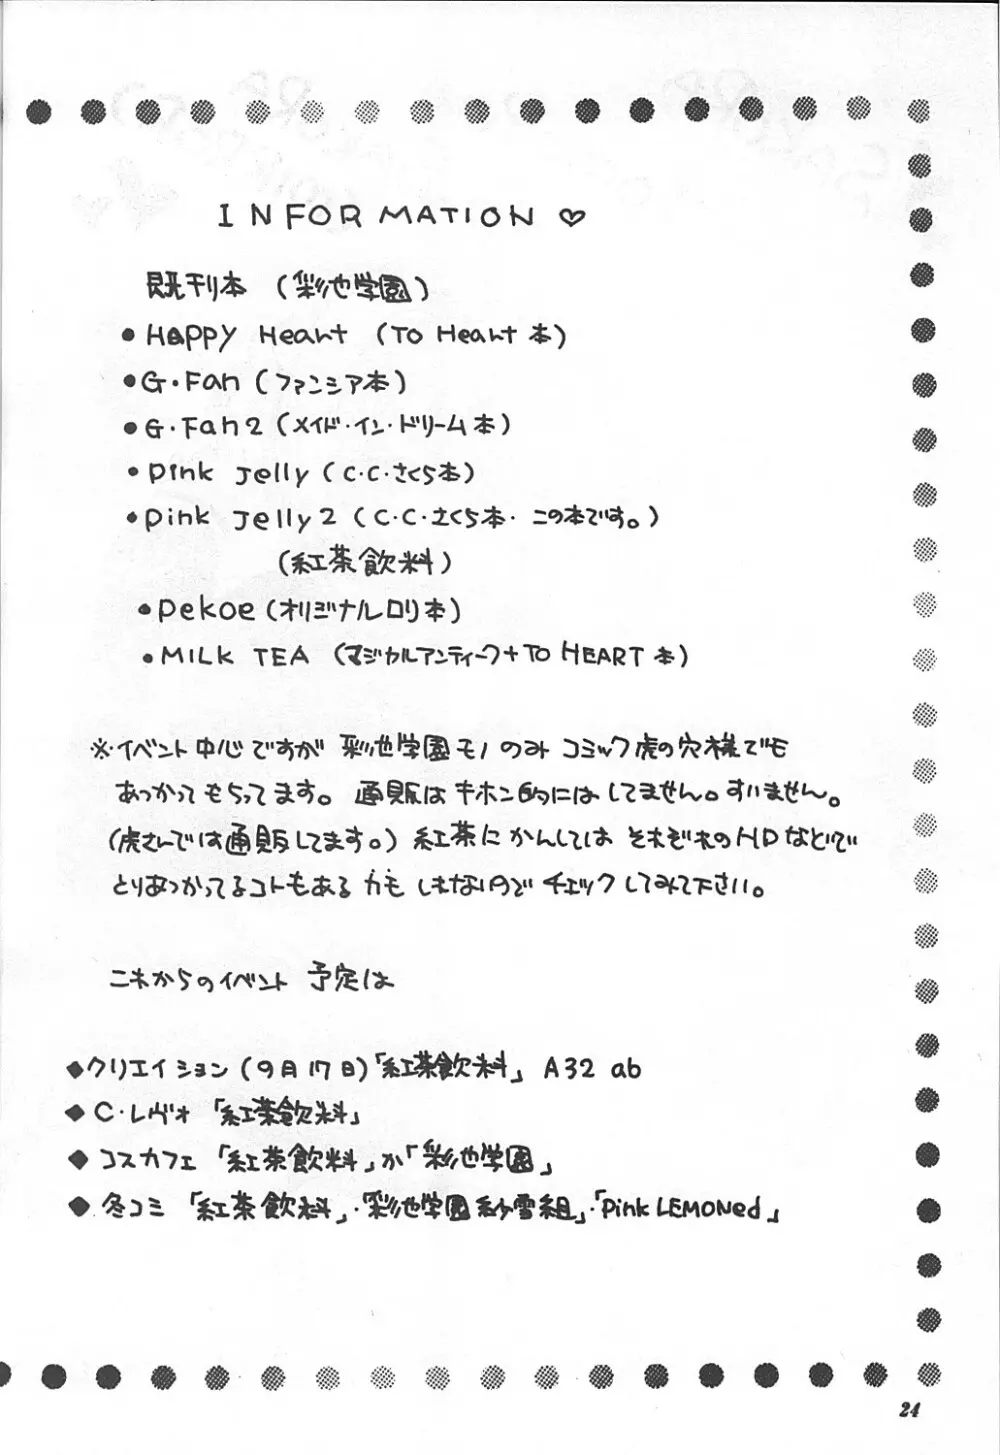 INFORMATION ♡
既刊本 (彩池学園)
●HAPPY Heart (TO Heart本)
●G・Fan (ファンシア本)
●G・Fan2 (メイド・イン・ドリーム本)
●pink Jelly (C・C・さくら本)
●pink Jelly2 (C・C・さくら本・この本です。)
(紅茶飲料)
●pekoe (オリジナルロリ本)
●MILK TEA (マジカルアンティーク+TO HEART本)
※・イベント中心ですが 彩池学園モノのみ コミック虎の穴様でも
あつかってもらってます。通販はキホン的にはしてません。すいません。
(虎さんでは通販してます。)紅茶にかんしては それぞれのHDなどで
とりあつかってるコトもあるかもしれないので チェックしてみて下さい。
これからのイベント予定は
◆クリエイション(9月17日)「紅茶飲料」 A32 ab
◆C・レヴォ「紅茶飲料」
◆コスカフェ「紅茶飲料」か「彩池学園」
◆冬コミ「紅茶飲料」・「彩池学園紗雪組」・「Pink LEMONed」
24